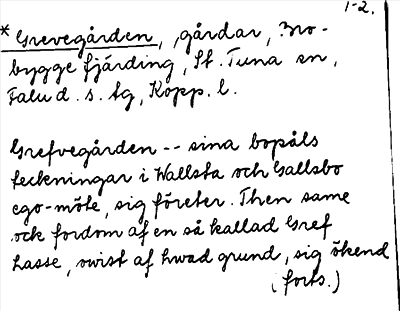 1-2.
* Grevegården, gårdar, Bro-
bygge fjärding, St. Tuna sn,
Falu d. s. tg, Kopp. l.
Grefvegården -- sina bopåls
teckningar i Wallsta och Gallsbo
ego-möte, sig företer. Then same
ock fordom af en så kallad Gref
Lasse, owist af hwad grund, sig ökend
(forts.)